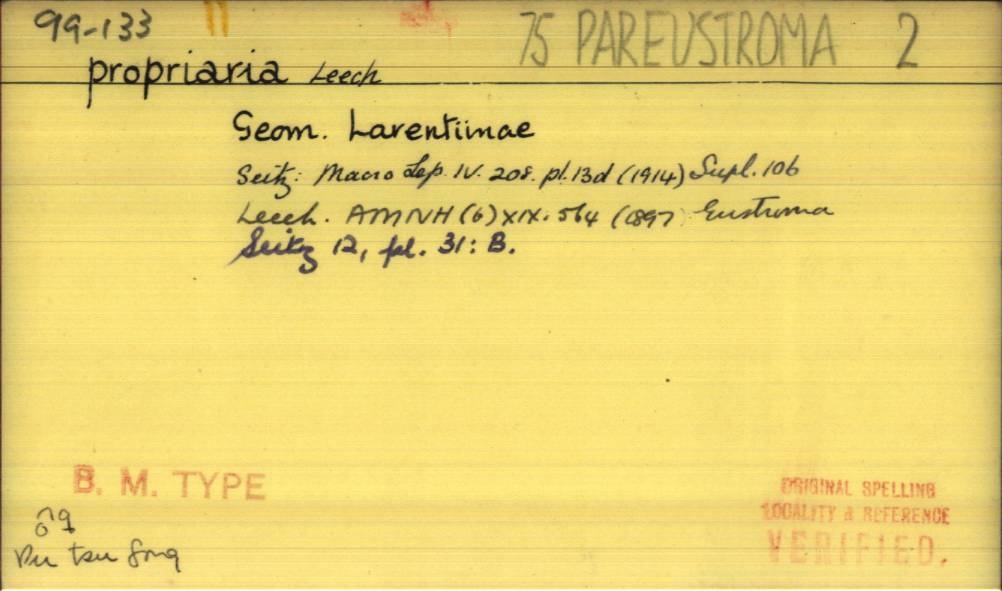 99-133
75 PAREUSTROMA 2
propriaria Leech
Geom. Larentiinae
Seitz: Macro Lep. IV. 208. pl. 13d (1914) Supl. 106
Leech. AMNH (6) XIX. 564 (1897) Eustroma
Seitz 12, pl. 31: B.
B. M. TYPE
ORIGINAL SPELLING
LOCALITY & REFERENCE
VERIFIED.
♂♀
Pu tsu fong